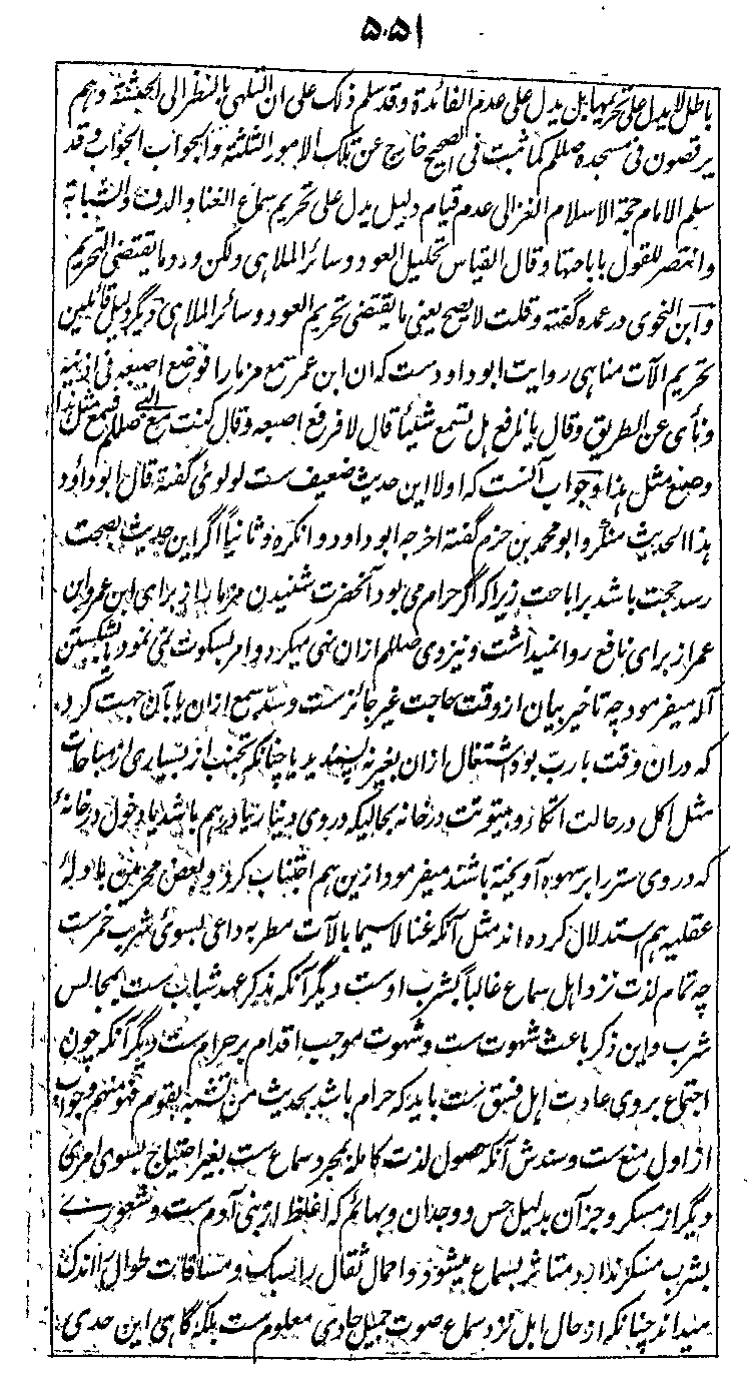 ۵۵۱
باطل لا یدل علی تحریمها بل یدل علی عدم الفائدة وقد سلم ذلک علی ان التلهی بالنظر الی الحبشة وهم
یرقصون فی مسجده صللم کما ثبت فی الصحیح خارج عن تلک الامور الثلثة والجواب الجواب وقد
سلم الامام حجة الاسلام الغزالی عدم قیام دلیل یدل علی تحریم سماع الغنا والدف والشبابة
وانتصر للقول باباحتها وقال القیاس تحلیل العود وسائر الملاهی ولکن ورد ما یقتضی التحریم
وابن النحوی در عمده گفته وقلت لا یصح یعنی ما یقتضی تحریم العود وسائر الملاهی دیگر دلیل قائلین
تحریم آلات مناهی روایت ابوداودست که ان ابن عمر سمع مزمارا فوضع اصبعه فی اذنیه
ونأی عن الطریق وقال یا نافع هل تسمع شیئاً قال لا فرفع اصبعه وقال کنت مع النبی صللم فسمع مثل هذا
وصنع مثل هذا وجواب آنست که اولا این حدیث ضعیف ست لولوئی گفته قال ابوداؤد
هذا الحدیث منکر وابو محمد بن حزم گفته اخرجه ابوداود وانکره وثانیاً اگر این حدیث بصحت
رسد حجت باشد بر اباحت زیرا که اگر حرام می بود آنحضرت شنیدن مزمار را از برای ابن عمر وابن
عمر از برای نافع روا نمیداشت ونیز وی صللم ازان نهی میکرد وامر بسکوت می نمود یا بشکستن
آله میفرمود چه تاخیر بیان از وقت حاجت غیر جائز ست وسد سمع ازان یا بآن جهت کرد
که دران وقت بارب بود اشتغال ازان بغیر نه پسندید یا چنانکه تجنب از بسیاری از مباحات
مثل اکل در حالت اتکاء وبیتوتت در خانه بحالیکه در وی دینار یا درهم باشد یا دخول در خانهٔ
که در وی ستر را بر سهوه آویخته باشند میفرمود ازین هم اجتناب کرد وبعض محرمین بادلهٔ
عقلیه هم استدلال کرده اند مثل آنکه غنا لا سیما بالآت مطربه داعی بسوئ شرب خمرست
چه تمام لذت نزد اهل سماع غالباً بشرب اوست دیگر آنکه مذکر عهد شباب ست بمجالس
شرب واین ذکر باعث شهوت ست وشهوت موجب اقدام بر حرام ست دیگر آنکه چون
اجتماع بر وی عادت اهل فسق ست باید که حرام باشد بحدیث من تشبه بقوم فهو منهم وجواب
از اول منع ست وسندش آنکه حصول لذت کامله بمجرد سماع ست بغیر احتیاج بسوی امری
دیگر از مسکر وجز آن بدلیل حس ووجدان وبهائم که اغلظ از بنی آدم ست وشعورے
بشرب مسکر ندارد متاثر بسماع میشود واحمال ثقال را سبک ومسافات طوال را اندک
میداند چنانکه از حال ابل نزد سماع صوت جمیل حادی معلوم ست بلکه گاهی این حدی